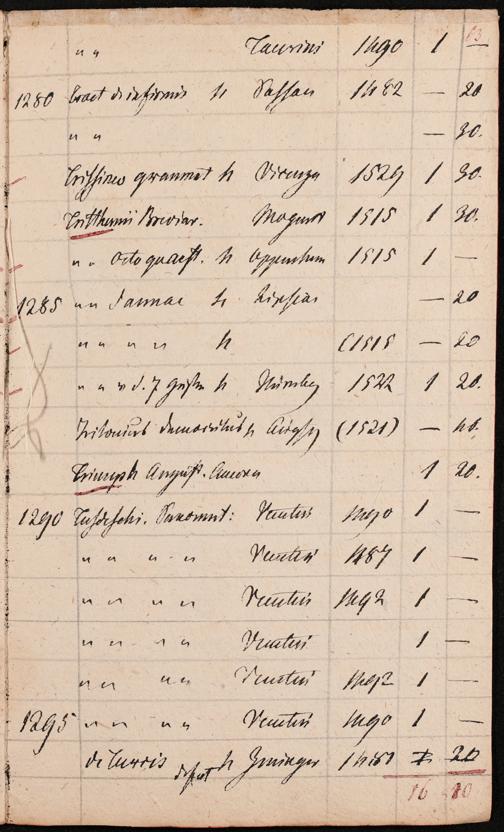 13
" " Taurini 1490 1 —
1280 Tract de infirmis h Passau 1482 — 20
" " — 30.
Trissineo grammat h Vicenza 1529 1 30.
Trithemii Breviar. Mogunt 1515 1 30.
" " octo quaest. h Oppenheim 1515 1 —
1285 " " h — 20
" " " " h (1515 — 20
" " v d. 7 h Nürnberg 1522 1 20.
Tritonius h Augsp (1521) — 40.
Triumph August. 1 20.
1290 Venetiis 1490 1 —
" " " " Venetiis 1487 1 —
" " " " Venetiis 1492 1 —
" " " " Venetiis 1 —
" " " " Venetiis 1492 1 —
1295 " " " " Venetiis 1490 1 —
de Turris defect h 1481 20
16